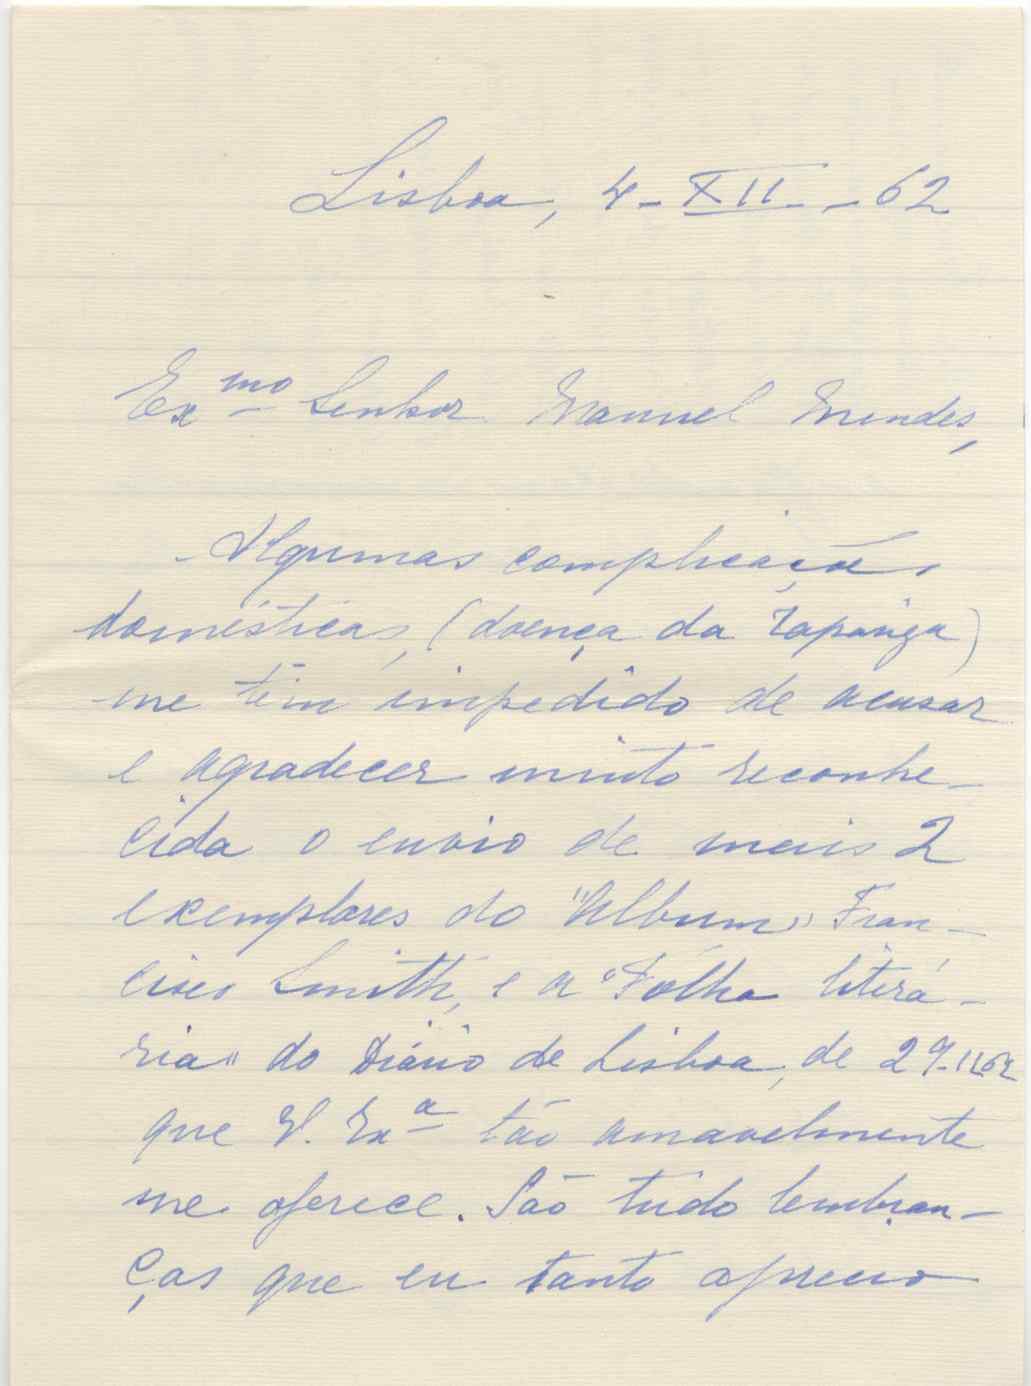 Lisboa, 4-XII-62
Ex.mo Senhor Manuel Mendes,
Algumas complicações
domésticas, (doença da rapariga)
me têm impedido de acusar
e agradecer muito reconhe-
cida o envio de mais 2
exemplares do "Album" Fran-
cisco Smith, e a "Fôlha literá-
ria" do Diário de Lisboa, de 29-11-62
que V. Ex.a tão amavelmente
me oferece. São tudo lembran-
ças que eu tanto aprecio